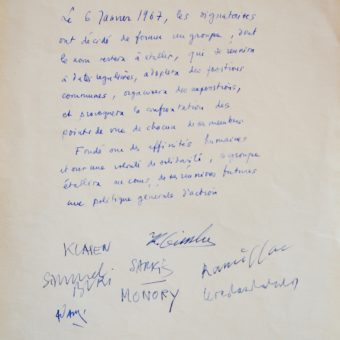 Le 6 Janvier 1967, les signataires
ont décidé de former un groupe, dont
le nom restera à établir, qui se réunira
à dates régulières, adoptera des positions
communes, organisera des expositions,
et provoquera la confrontation des
points de vue de chacun de ses membres.
Fondé sur des affinités humaines
et sur une volonté de solidarité, ce groupe
établira au cours de ses réunions futures
une politique générale d'action
KLASEN
SARKIS
Samuel BURI
MONORY